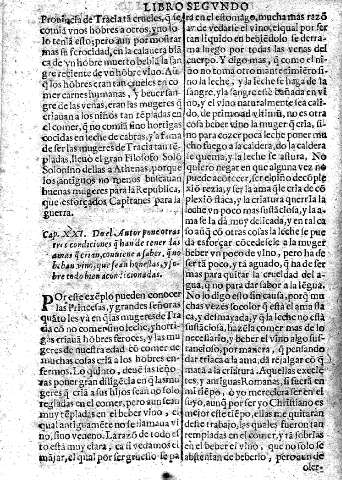 LIBRO SEGVNDO
Prouincia de Tracia tã crueles, q̃ se
comiã vnos hõbres a otros, y no so
lo teniã esto; pero aun por mostrar
mas su ferocidad, en la calauera blã
ca de vn hõbre muerto bebiã la san
gre reciente de vn hõbre viuo. Aun
q̃ los hõbres eran tan crueles en co
mer carnes humanas, y beuer san-
gre de las venas, eran las mugeres q̃
criauan a los niños tan tẽpladas en
el comer, q̃ no comiã sino hortigas
cocidas en leche de cabras, y a fama
de ser las mugeres de Tracia tan tẽ
pladas, lleuò el gran Filosofo Solõ
Solonino dellas a Athenas, porque
los antiguos no menos buscauan
buenas mugeres para la Republica,
que esforçados Capitanes para la
guerra.
Cap. XXI. Do el Autor pone otras
tres condiciones q̃ han de tener las
amas q̃ crian, conuiene a saber, q̃ no
beban vino, que sean honestas, y so-
bre todo bien acondicionadas.
POr este exẽplo pueden conocer
las Princesas, y grandes señoras
quãto les va en q̃ las mugeres de Tra
cia cõ no comer sino leche, y horti-
gas criauã hõbres feroces, y las mu
geres de nuestra edad cõ comer de
muchas cosas criã a los hõbres en-
fermos. Lo quinto, deuẽ las seño-
ras poner gran diligẽcia en las mu
geres q̃ criã a sus hijos sean no solo
regladas en el comer, pero aun sean
muy tẽpladas en el beber vino, el
qual antiguamẽte no se llamaua vi
no, sino veneno. La razõ de todo es
to està muy clara, ca si vedamos el
mãjar, el qual por ser gruesso se pa
ra en el estomago, mucha mas razõ
ser de vedarle el vino, el qual por ser
tan liquido en bebiẽdolo se derra-
ma luego por todas las venas del
cuerpo. Y digo mas, q̃ como el ni-
ño no toma otro mantenimiẽto si-
no la leche, y la leche nace de la san-
gre, y la sangre estè bañada en vi
no, y el vino naturalmente sea cali-
do, de primo ad vltimũ, no es otra
cosa beber vino la muger q̃ cria, si
no para cozer poca leche poner mu
cho fuego a la caldera, do la caldera
se quema, y la leche se astura. No
quiero negar en que alguna vez no
puede acontecer, ser el niño de cõple
xiõ rezia, y ser la ama q̃ le cria de cõ
plexiõ flaca, y la criatura querria la
leche vn poco mas sustãciosa, y la a
ma se la dà muy delicada, y en tal ca
so aunq̃ cõ otras cosas la leche se pue
da esforçar cõcedesele a la muger
beber vn poco de vino, pero ha de
ser tã poco, y tã aguado, q̃ ha de ser
mas para quitar la crueldad del a-
gua, q̃ no para dar sabor a la lẽgua.
No lo digo esto sin causa, porq̃ mu
chas vezes so color q̃ està el ama fla
ca, y desmayada, y q̃ la leche no està
sustãciosa, hazẽla comer mas de lo
necessario, y beber el vino algo sus-
tancioso, por manera, q̃ pensando
dar triaca al ama, dã rejalgar cõ q̃
matã a la criatura. Aquellas excelẽ
tes, y antiguas Romanas, si fuera en
mi tiẽpo, ò yo mereciera ser en el
suyo, aunq̃ por ser yo Christiano es
mejor este tiẽpo, ellas me quitaràn
deste trabajo, las quales fueron tan
templadas en el comer, y tã sobrias
en el beber el vino, que no solo se
absteniã de beberlo, pero aun de
oler-